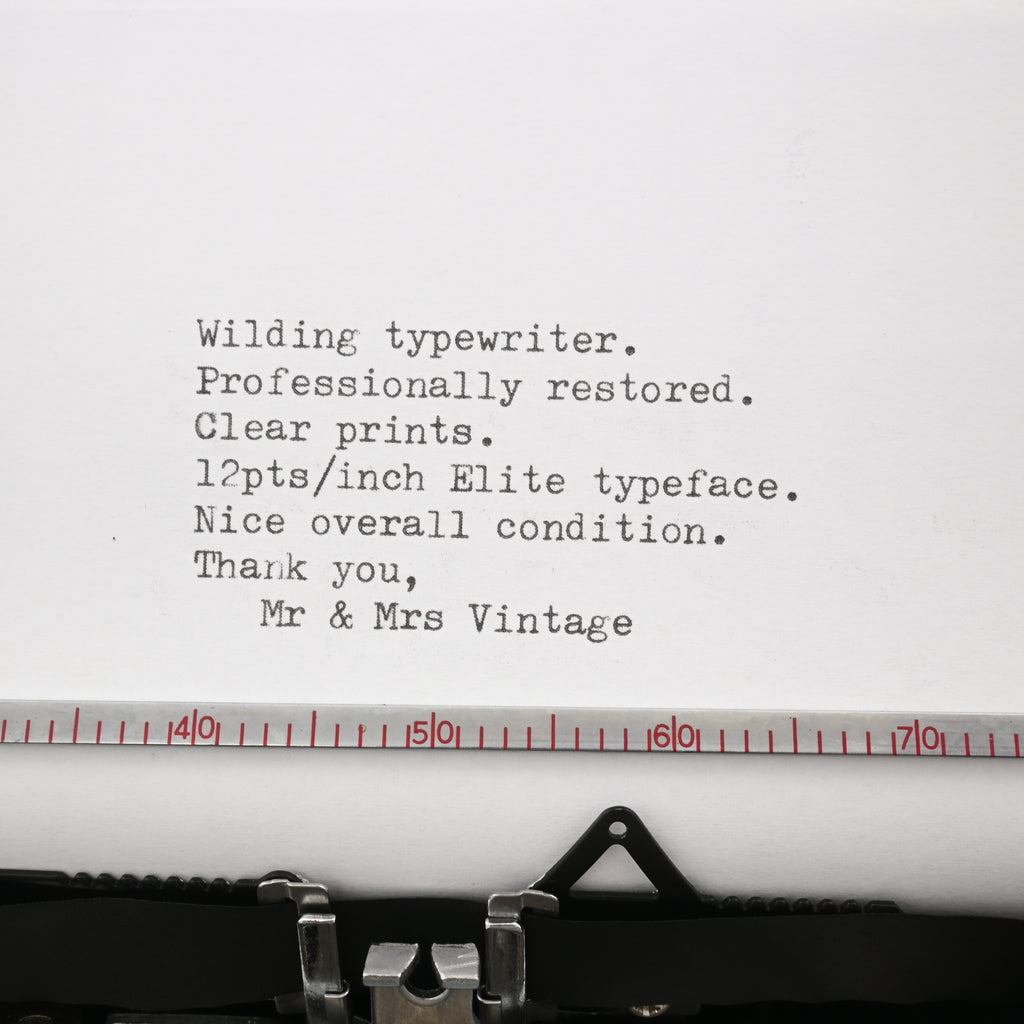 Wilding typewriter.
Professionally restored.
Clear prints.
12pts/inch Elite typeface.
Nice overall condition.
Thank you,
Mr & Mrs Vintage
40 50 60 70